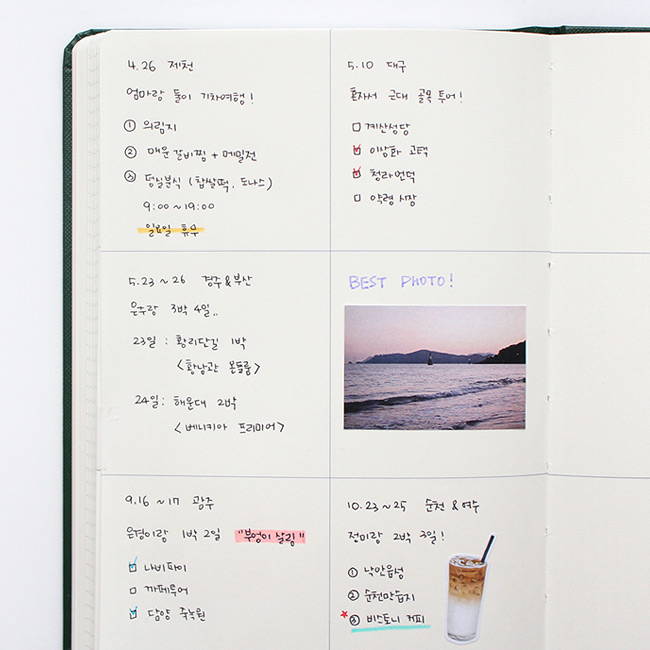 4.26 제천
엄마랑 둘이 기차여행!
① 의림지
② 매운 갈비찜 + 메밀전
③ 덩실분식 (찹쌀떡, 도나스)
9:00 ~ 19:00
일요일 휴무
5.10 대구
혼자서 근대 골목 투어!
□ 계산성당
☑ 이상화 고택
☑ 청라언덕
□ 약령시장
5.23 ~ 26 경주 & 부산
은주랑 3박 4일..
23일 : 황리단길 1박
<황남관 온돌룸>
24일 : 해운대 2박
<베니키아 프리미어>
BEST PHOTO!
9.16 ~ 17 광주
은경이랑 1박 2일 "부엉이 살림"
☑ 나비파이
□ 카페투어
☑ 담양 죽녹원
10.23 ~ 25 순천 & 여수
전미랑 2박 3일!
① 낙안읍성
② 순천만습지
★ ③ 비스토니 커피